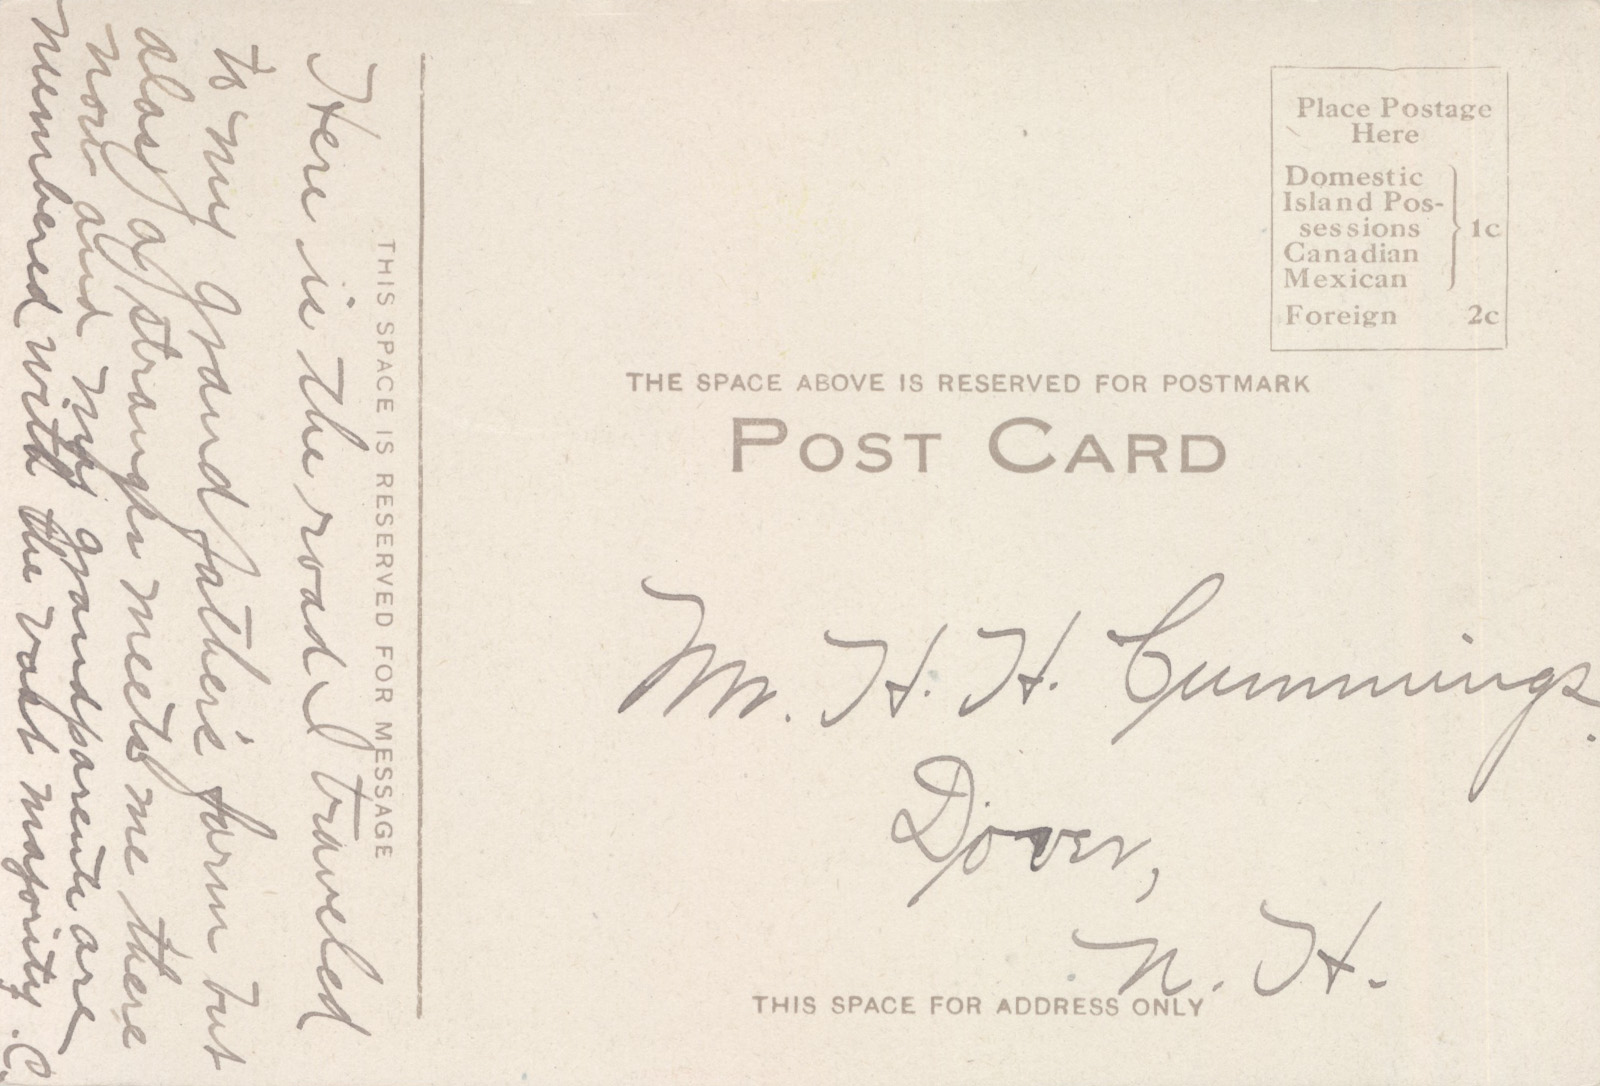 Place Postage
Here
Domestic
Island Pos-
sessions
Canadian
Mexican
1c
Foreign 2c
THE SPACE ABOVE IS RESERVED FOR POSTMARK
POST CARD
THIS SPACE IS RESERVED FOR MESSAGE
Here is the road I traveled
to my grandfather's farm but
alas, a stranger meets me there
now and my grandparents are
numbered with the vast majority. C.
Mr. H. H. Cummings.
Dover,
N. H.
THIS SPACE FOR ADDRESS ONLY